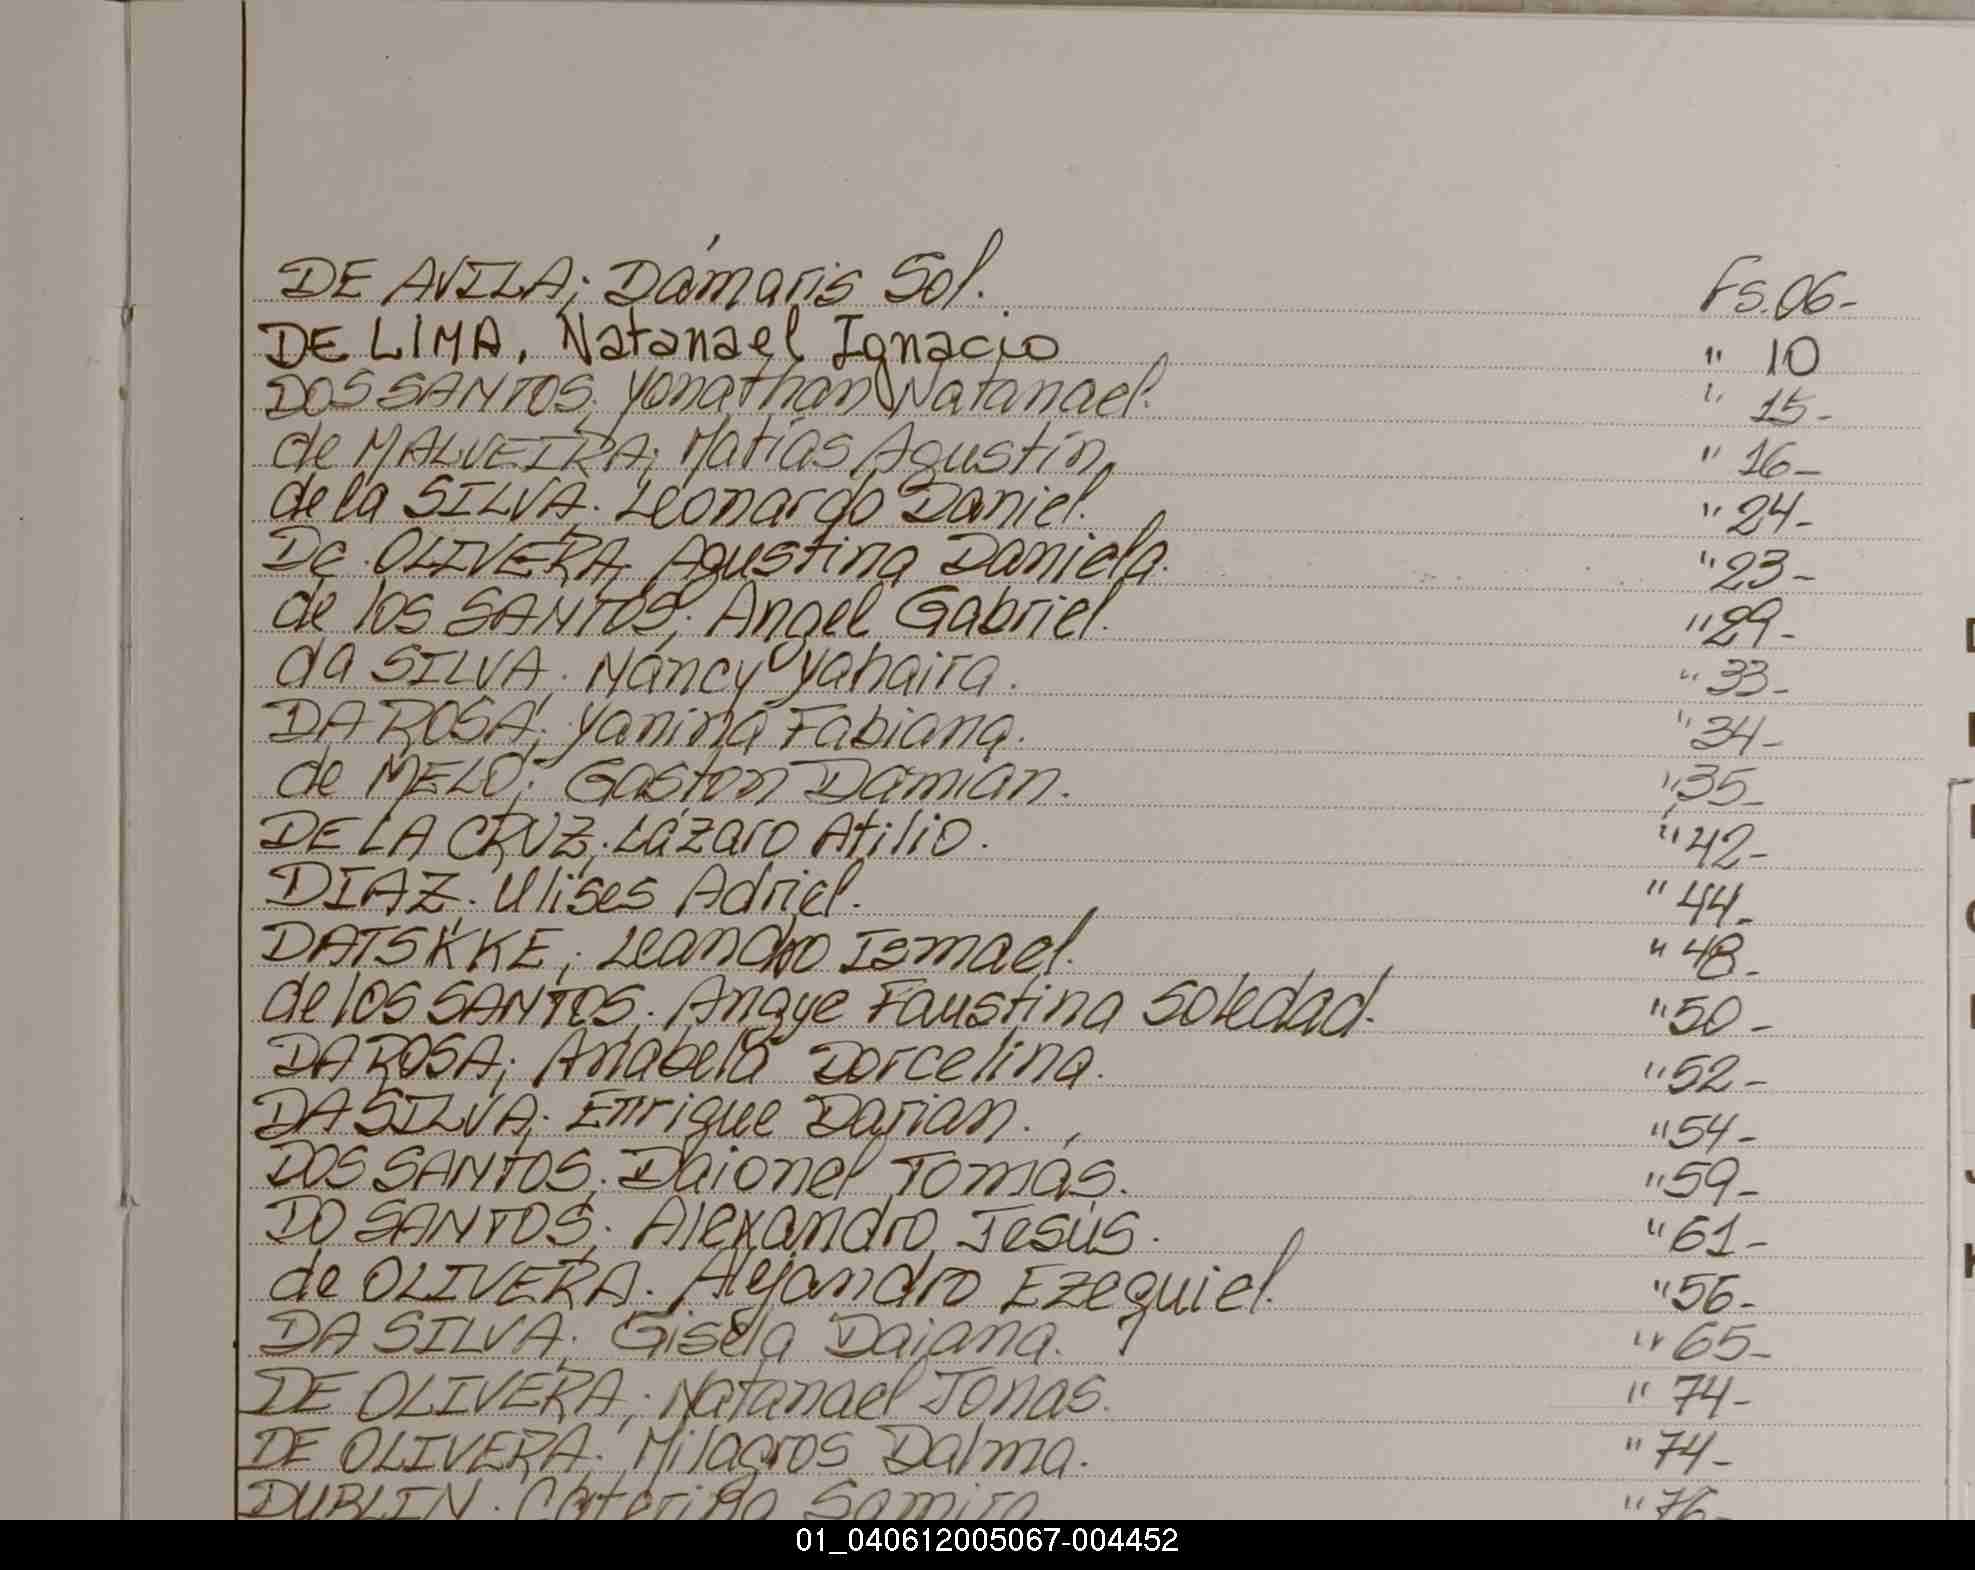 DE AVILA; Dámaris Sol. Fs. 06-
DE LIMA, Natanael Ignacio " 10
DOS SANTOS. Yonathan Natanael. " 15-
de MALVEIRA; Matías Agustín. " 16-
de la SILVA. Leonardo Daniel. " 24-
De OLIVERA, Agustina Daniela. " 23-
de los SANTOS; Angel Gabriel. " 29-
da SILVA. Nancy Yahaira. " 33-
DA ROSA; Yanina Fabiana. " 34-
de MELO; Gaston Damian. " 35-
DE LA CRUZ; Lázaro Atilio. " 42-
DIAZ. Ulises Adriel. " 44-
DATSKKE; Leandro Ismael. " 48-
de los SANTOS. Angye Faustina Soledad. " 50-
DA ROSA; Anabela Dorcelina. " 52-
DA SILVA; Enrique Darian. " 54-
DOS SANTOS; Daionel Tomás. " 59-
DO SANTOS; Alexandro Jesús. " 61-
de OLIVERA. Alejandro Ezequiel. " 56-
DA SILVA; Gisela Daiana. " 65-
DE OLIVERA; Natanael Jonas. " 74-
DE OLIVERA. Milagros Dalma. " 74-
DUBLIN. Caterina Samira " 76-
01_040612005067-004452